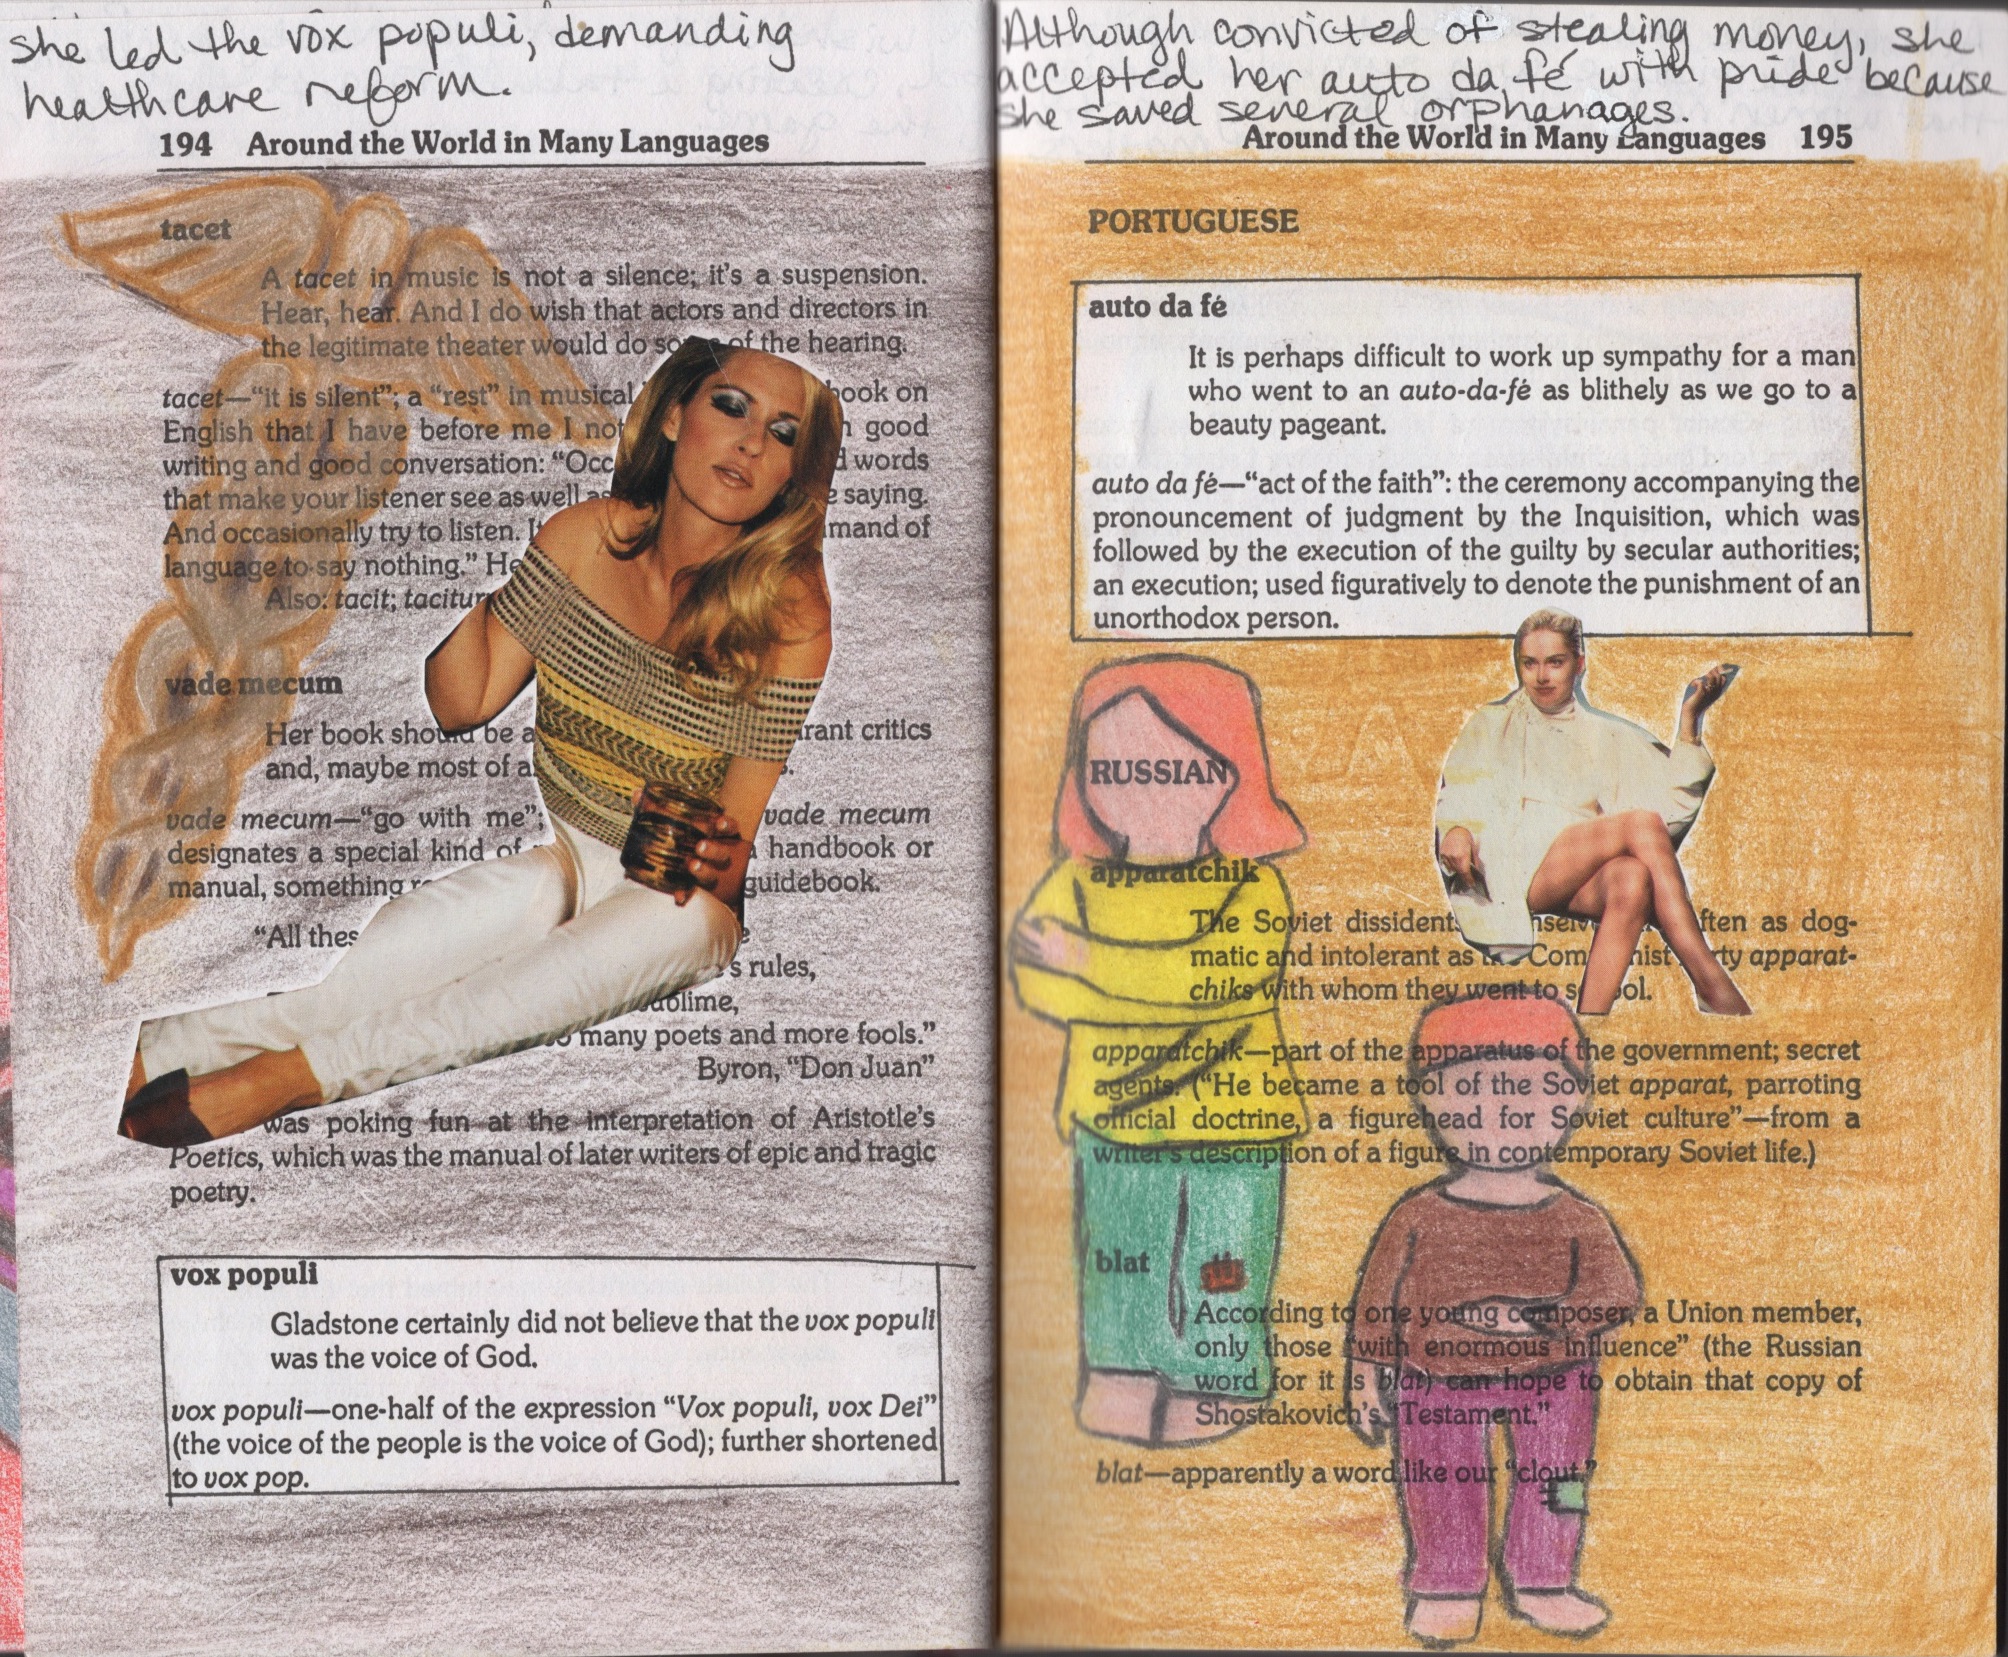 she led the vox populi, demanding
healthcare reform.
194 Around the World in Many Languages
tacet
A tacet in music is not a silence; it's a suspension.
Hear, hear. And I do wish that actors and directors in
the legitimate theater would do of the hearing.
tacet—“it is silent”; a “rest” in musical book on
English that I have before me I good
writing and good conversation: “Occ words
that make your listener see as well as saying.
And occasionally try to listen. of
language to say nothing.”
Also: tacit;
vade mecum
Her book should be a critics
and, maybe most of
vade mecum—“go with me”; vade mecum
designates a special kind of handbook or
manual, something guidebook.
“All
's rules,
many poets and more fools.”
Byron, “Don Juan”
was poking fun at the interpretation of Aristotle's
Poetics, which was the manual of later writers of epic and tragic
poetry.
vox populi
Gladstone certainly did not believe that the vox populi
was the voice of God.
vox populi—one-half of the expression “Vox populi, vox Dei”
(the voice of the people is the voice of God); further shortened
to vox pop.
Although convicted of stealing money, she
accepted her auto da fé with pride because
she saved several orphanages.
Around the World in Many Languages 195
PORTUGUESE
auto da fé
It is perhaps difficult to work up sympathy for a man
who went to an auto-da-fé as blithely as we go to a
beauty pageant.
auto da fé—“act of the faith”: the ceremony accompanying the
pronouncement of judgment by the Inquisition, which was
followed by the execution of the guilty by secular authorities;
an execution; used figuratively to denote the punishment of an
unorthodox person.
RUSSIAN
apparatchik
The Soviet dissidents often as dog-
matic and intolerant as the Communist Party apparat-
chiks with whom they went to school.
apparatchik—part of the apparatus of the government; secret
agents. (“He became a tool of the Soviet apparat, parroting
official doctrine, a figurehead for Soviet culture”—from a
writer's description of a figure in contemporary Soviet life.)
blat
According to one young composer, a Union member,
only those “with enormous influence” (the Russian
word for it is blat) can hope to obtain that copy of
Shostakovich's “Testament.”
blat—apparently a word like our “clout.”